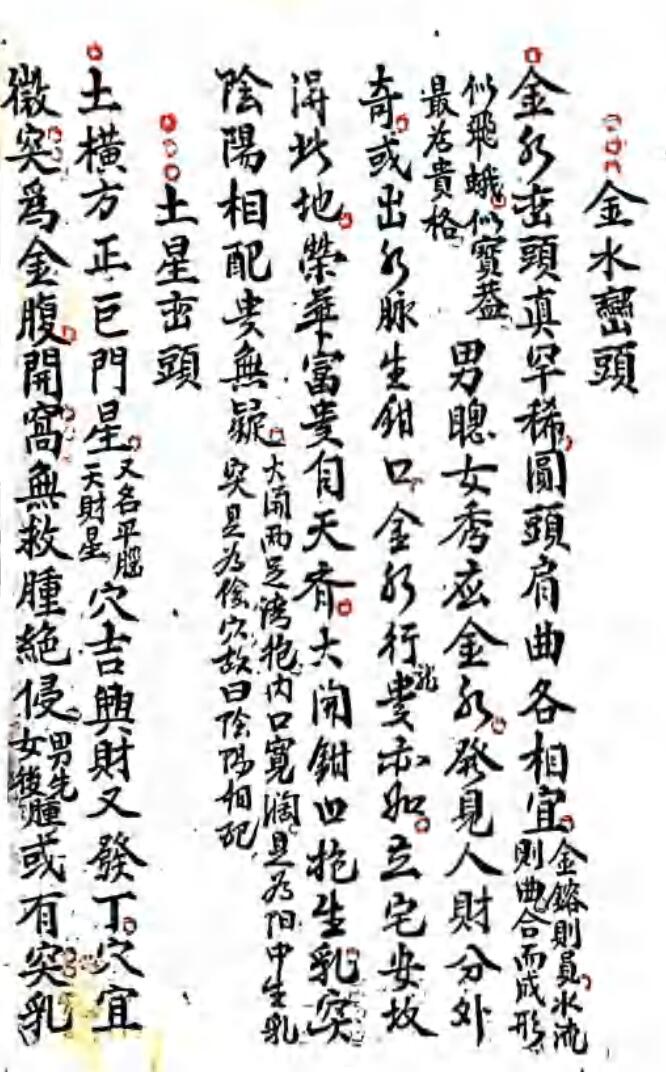 金水巒頭
金水峦頭真罕稀圓頭肩曲各相宜金鎔則員水流則曲合而成形
似飛蛾似寶蓋最为貴格男聰女秀应金水發見人財分外
奇或出水脉生鉗口金水行龍貴亦如立宅安坟
得此地榮華富貴自天齊大開鉗口抱生乳突
陰陽相配貴無疑大開両足湾抱内口寬濶是为阳中生乳突是为陰穴故曰陰陽相配
土星峦頭
土橫方正巨門星又名平腦天財星穴吉興財又發丁穴宜
微突爲金腹開窩無救腫絕侵男先女後腫或有突乳